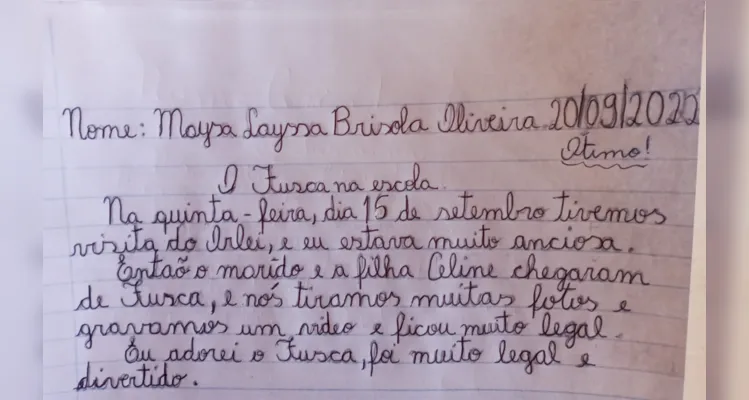 Nome: Maysa Layssa Brisola Oliveira 20/09/2022
Otimo!
O Fusca na escola.
Na quinta-feira, dia 15 de setembro tivemos
visita do Irlei, e eu estava muito anciosa.
Entaõ o marido e a filha Celine chegaram
de Fusca, e nós tiramos muitas fotos e
gravamos um video e ficou muito legal.
Eu adorei o Fusca, foi muito legal e
divertido.